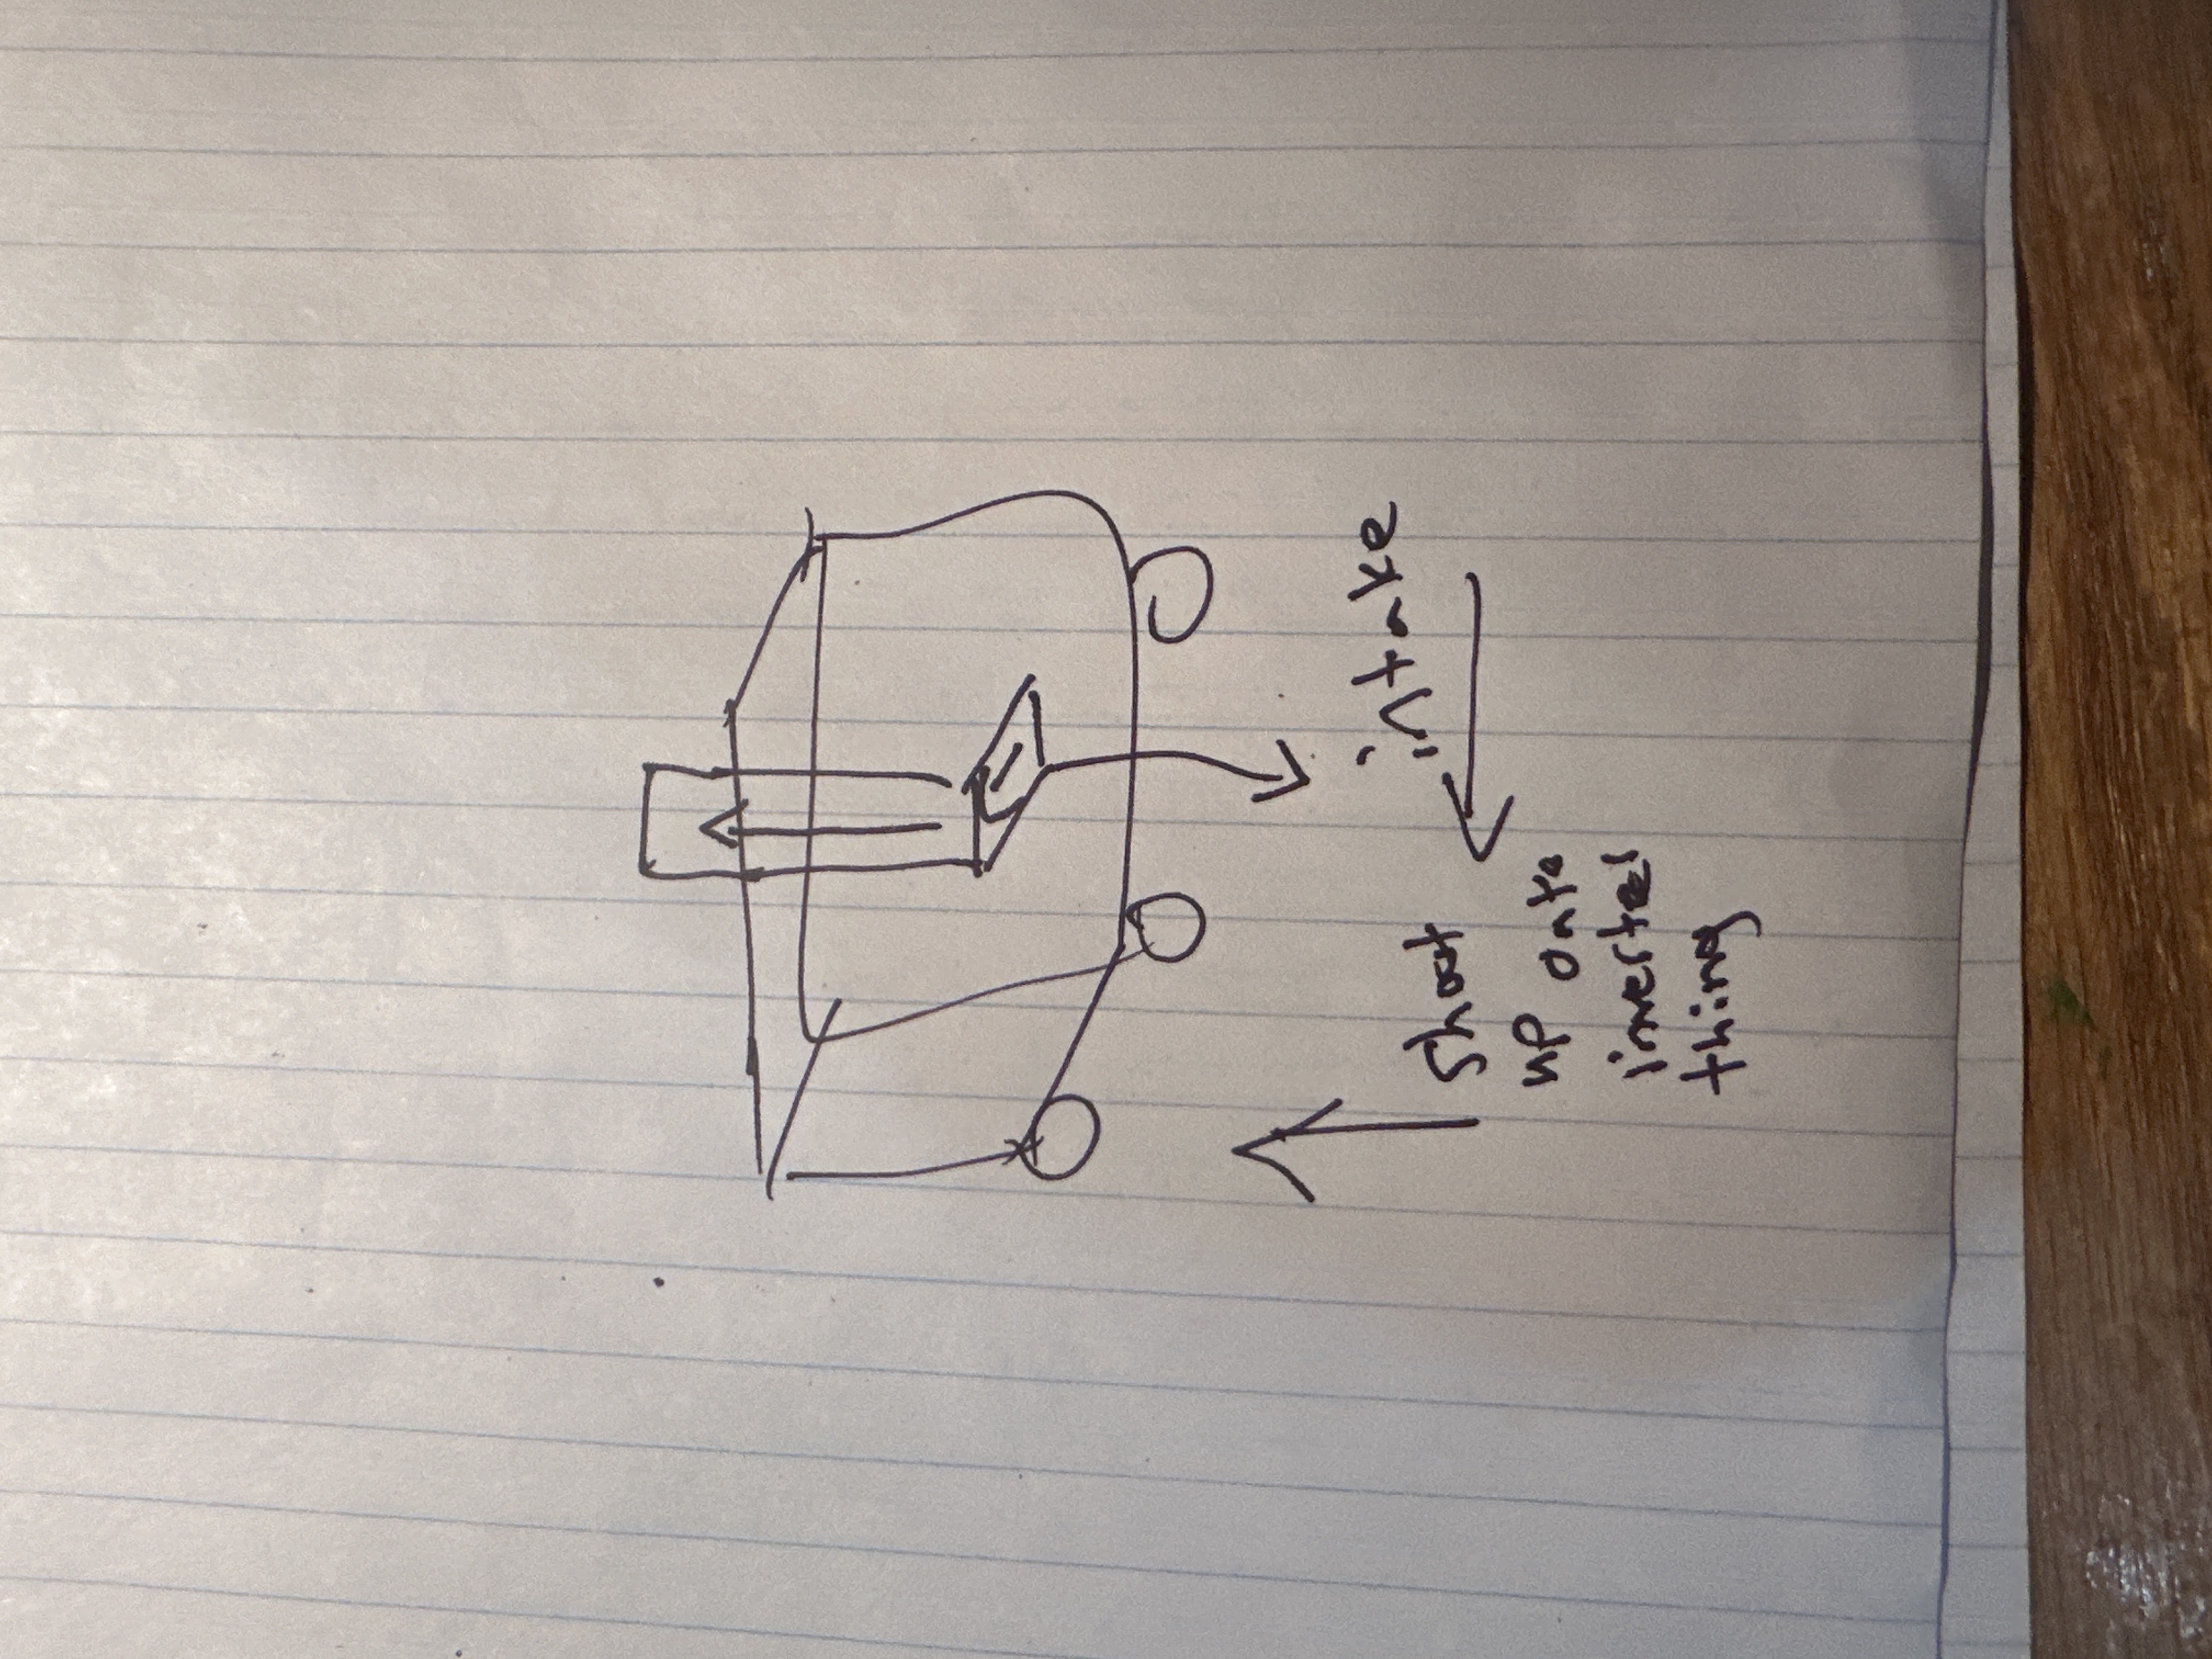 intake
shoot
up onto
inverted
thing